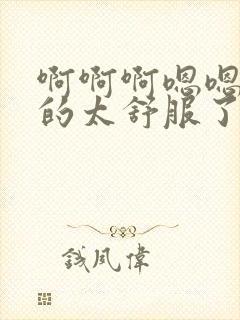 啊啊啊嗯嗯
的太舒服了
钱风伟